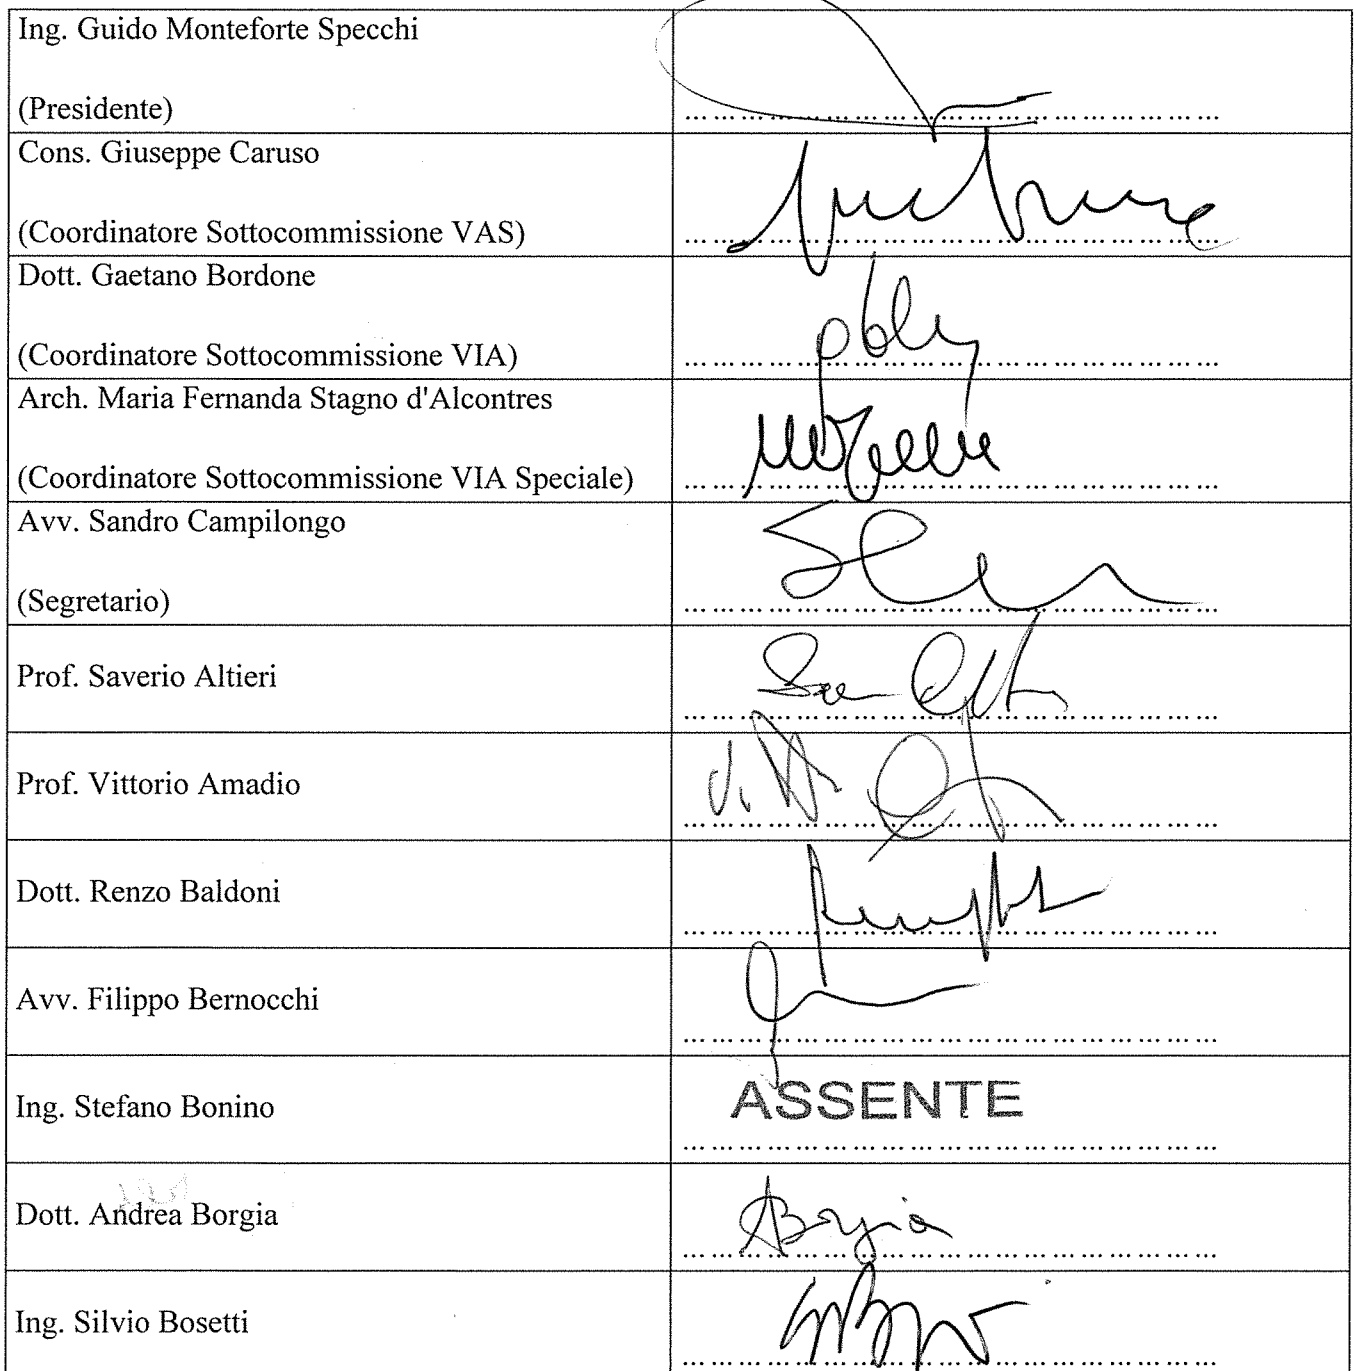 Ing. Guido Monteforte Specchi
(Presidente)
Cons. Giuseppe Caruso
(Coordinatore Sottocommissione VAS)
Dott. Gaetano Bordone
(Coordinatore Sottocommissione VIA)
Arch. Maria Fernanda Stagno d'Alcontres
(Coordinatore Sottocommissione VIA Speciale)
Avv. Sandro Campilongo
(Segretario)
Prof. Saverio Altieri
Prof. Vittorio Amadio
Dott. Renzo Baldoni
Avv. Filippo Bernocchi
Ing. Stefano Bonino
ASSENTE
Dott. Andrea Borgia
ABorgia
Ing. Silvio Bosetti